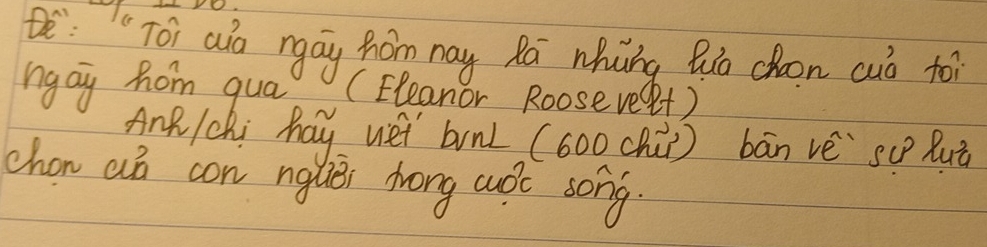 Đề: "Tôi của ngày hôm nay là những lựa chọn của tôi
ngày hôm qua (Eleanor Roosevelt)
Anh/chị hãy viết bvnl (600 chữ) bàn về sự lựa
chọn của con người trong cuộc sống.